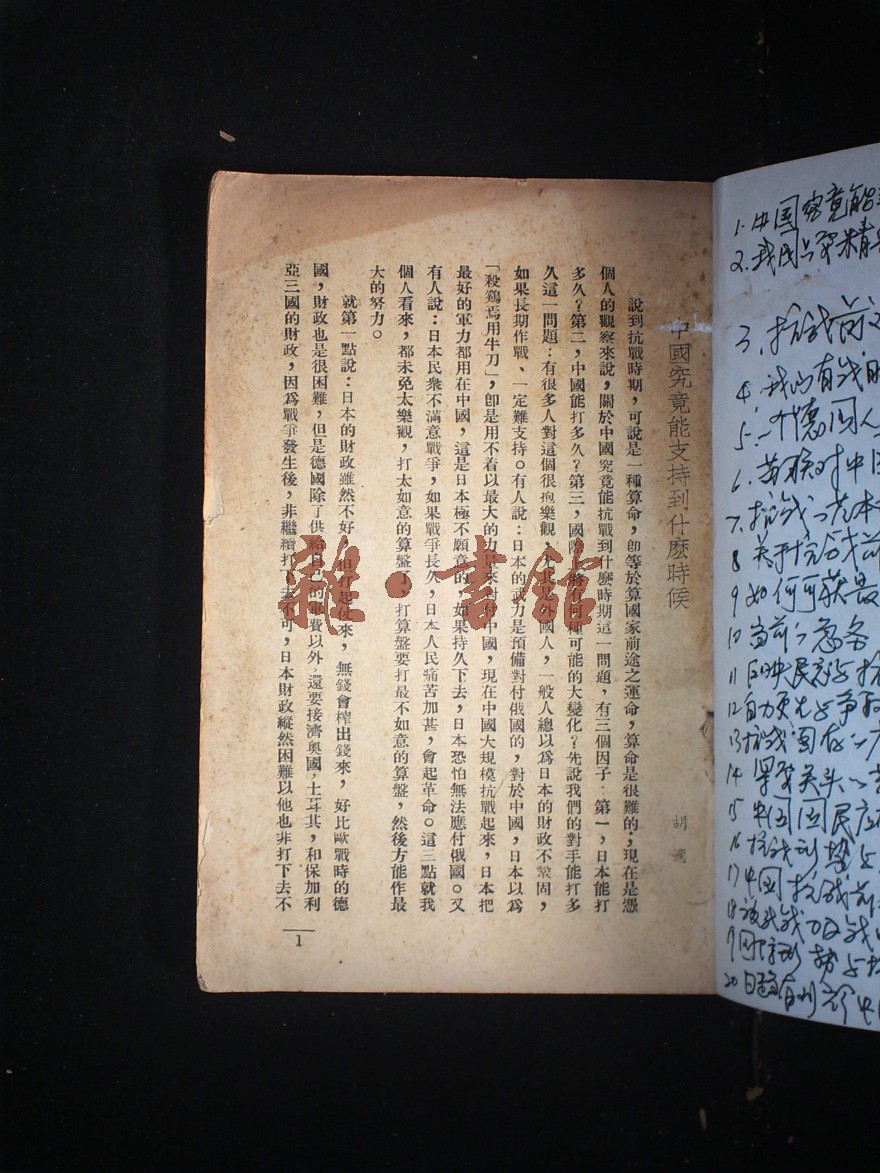 中國究竟能支持到什麽時候
胡適
說到抗戰時期，可說是一種算命，卽等於算國家前途之運命，算命是很難的；現在是憑
個人的觀察來說，關於中國究竟能抗戰到什麽時期這一問題，有三個因子：第一，日本能打
多久？第二，中國能打多久？第三，國際將有何種可能的大變化？先說我們的對手能打多
久這一問題：有很多人對這個很抱樂觀，尤其是外國人，一般人總以爲日本的財政不鞏固，
如果長期作戰、一定難支持。有人說：日本的武力是預備對付俄國的，對於中國，日本以爲
「殺鷄焉用牛刀」，卽是用不着以最大的力量來對付中國，現在中國大規模抗戰起來，日本把
最好的軍力都用在中國，這是日本極不願意的，如果持久下去，日本恐怕無法應付俄國。又
有人說：日本民衆不滿意戰爭，如果戰爭長久，日本人民痛苦加甚，會起革命。這三點就我
個人看來，都未免太樂觀，打太如意的算盤了，打算盤要打最不如意的算盤，然後方能作最
大的努力。
就第一點說：日本的財政雖然不好，但打起仗來，無錢會榨出錢來，好比歐戰時的德
國，財政也是很困難，但是德國除了供給自己的軍費以外，還要接濟奧國，土耳其，和保加利
亞三國的財政，因爲戰爭發生後，非繼續打下去不可，日本財政縱然困難以他也非打下去不
1
雜·書館
1.中国究竟能
2.我国上
3.抗战前
4.我们有
5.一个德国人
6.苏联对中
7.抗战
8关于抗战前
9如何可获最
10当前
11民族与抗
12自力更生与争取
13抗战
14最
15中国国民应
16抗战形势与
17中国抗战前
18
19国际形势与
20日